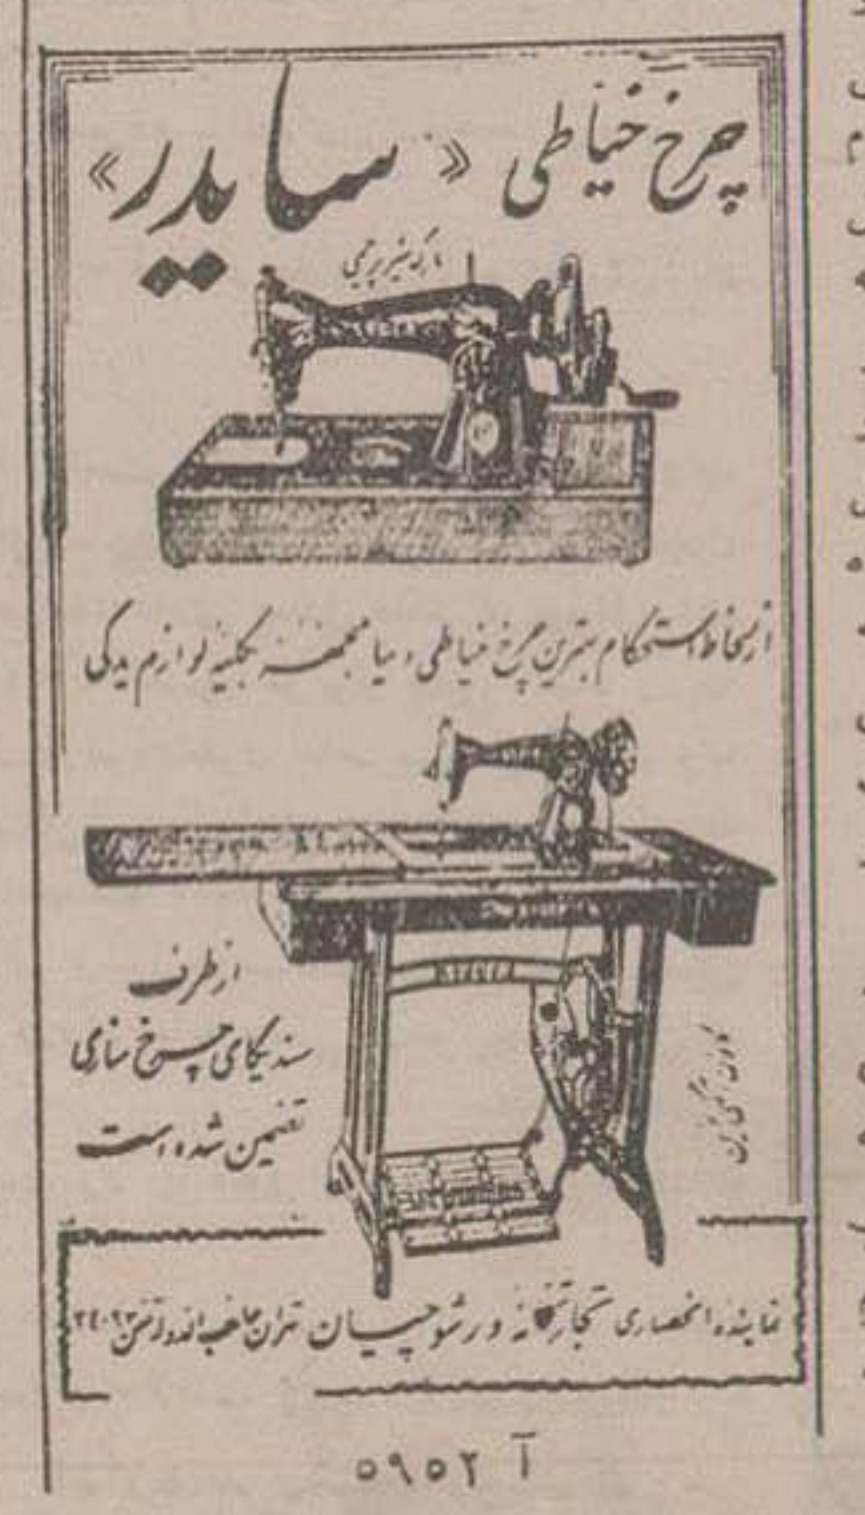 چرخ خیاطی «سایدر»
مارک شیر پرچمی
از لحاظ استحکام بهترین چرخ خیاطی دنیا مجهز به کلیه لوازم یدکی
از طرف
سندیکای چرخ سازی
تضمین شده است
کانون آگهی زیبا
نماینده انحصاری تجارتخانه ورشوچیان تهران تلفن ۲۴۰۲۳
آ ۵۹۵۲